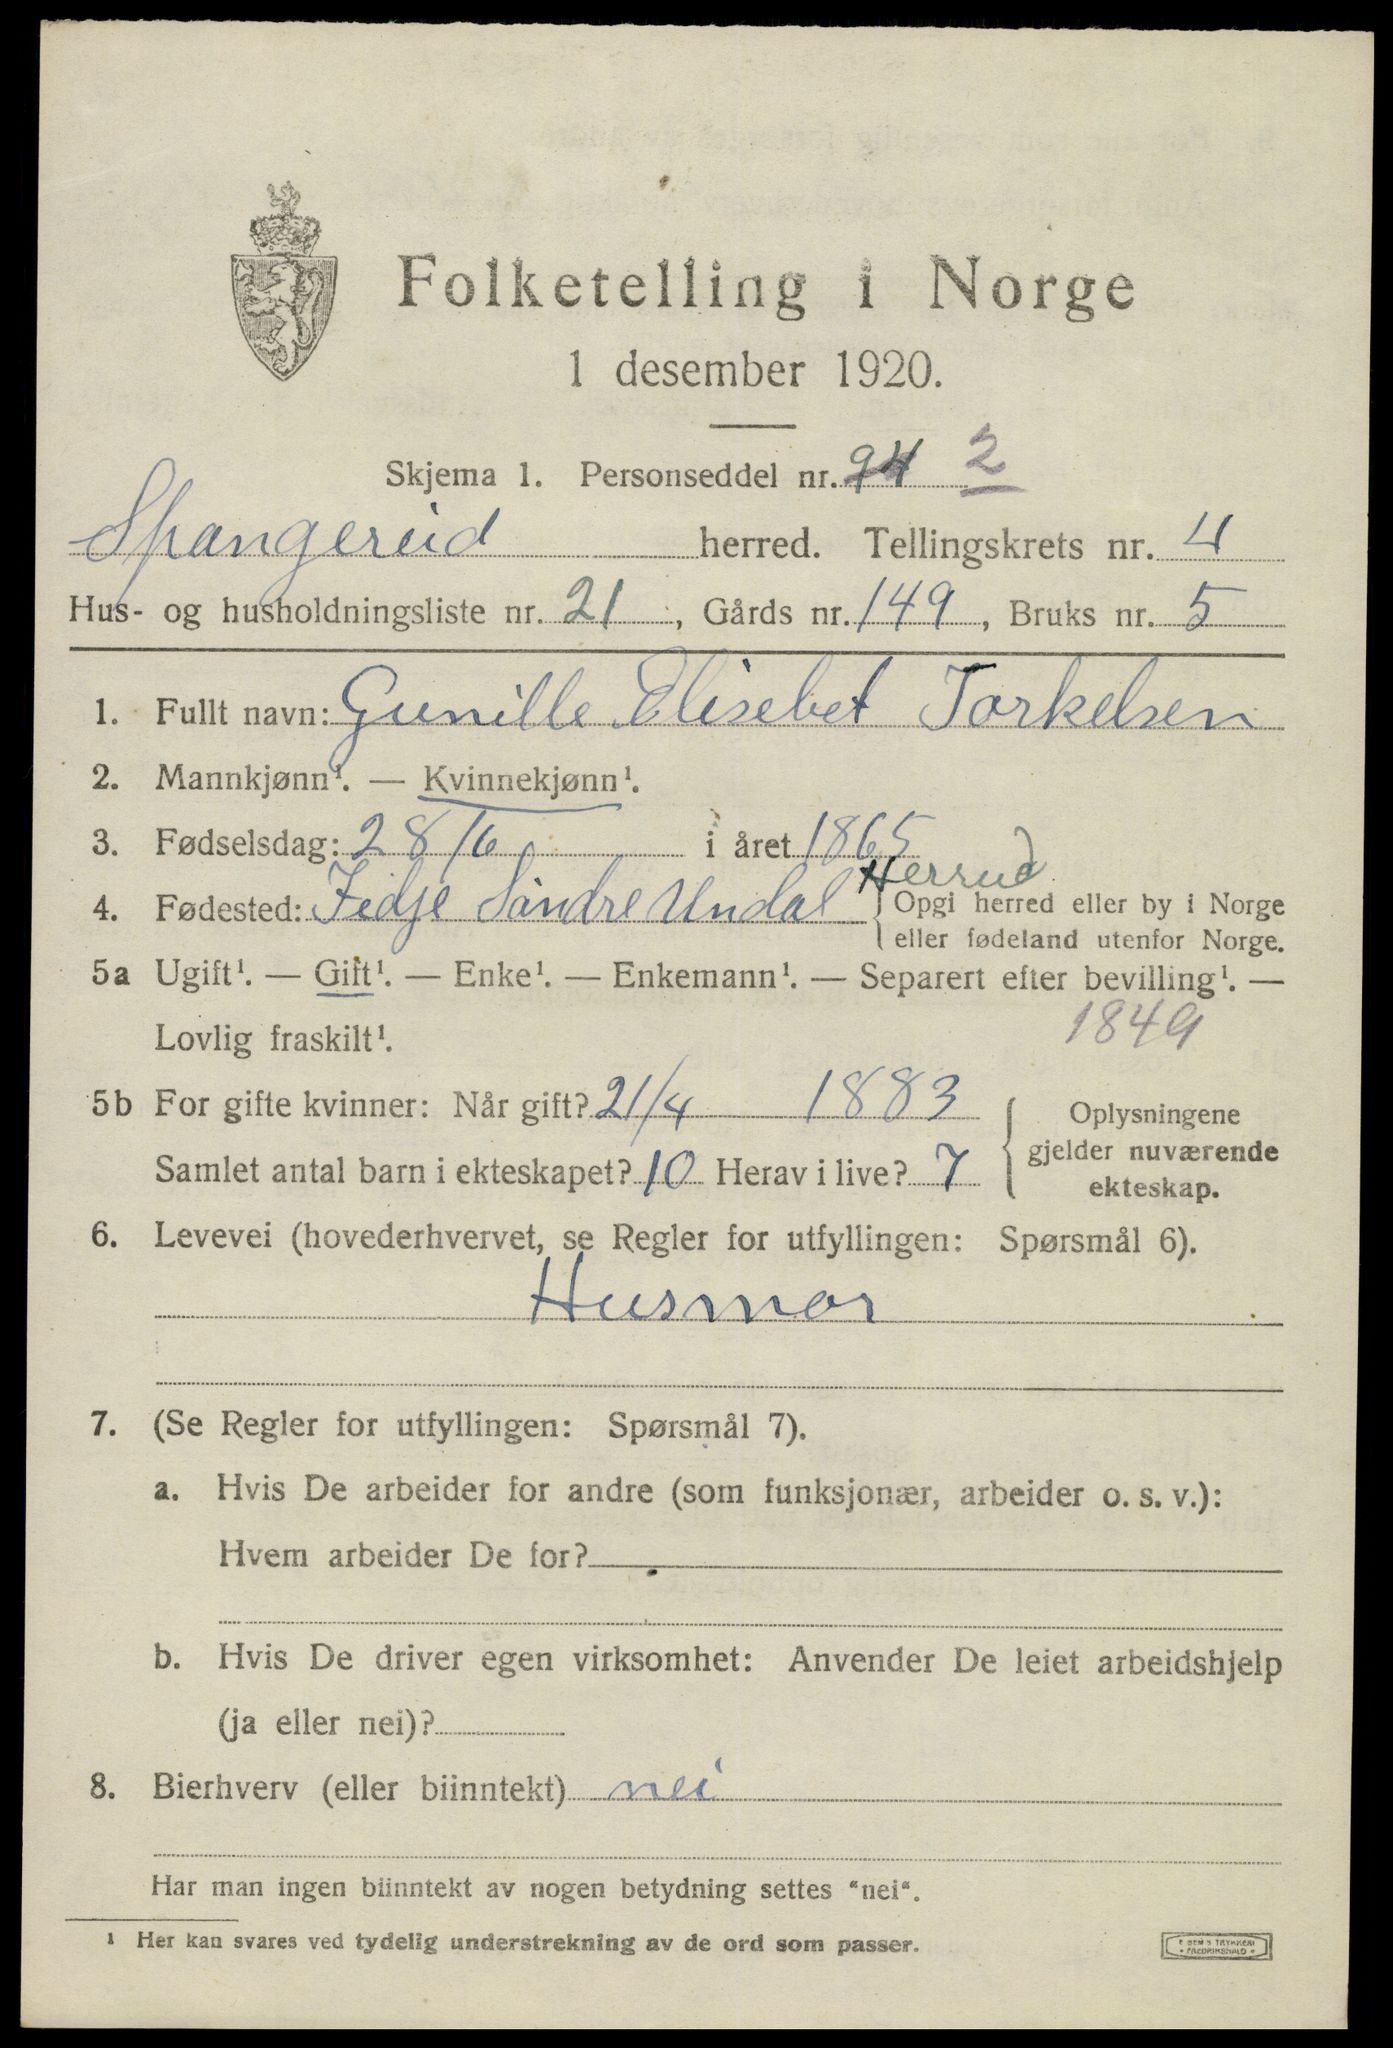 Folketelling i Norge
1 desember 1920.
Skjema 1. Personseddel nr. 94 2
Spangereid herred. Tellingskrets nr. 4
Hus- og husholdningsliste nr. 21, Gårds nr. 149, Bruks nr. 5
1. Fullt navn: Gunille Elisebet Torkelsen
2. Mannkjønn¹. — Kvinnekjønn¹.
3. Fødselsdag: 28/6 i året 1865
Herrud
4. Fødested: Fidje Söndre Undal { Opgi herred eller by i Norge
eller fødeland utenfor Norge.
5a Ugift¹. — Gift¹. — Enke¹. — Enkemann¹. — Separert efter bevilling¹. —
Lovlig fraskilt¹. 1849
5b For gifte kvinner: Når gift? 21/4 1883
Samlet antal barn i ekteskapet? 10 Herav i live? 7
Oplysningene
gjelder nuværende
ekteskap.
6. Levevei (hovederhvervet, se Regler for utfyllingen: Spørsmål 6).
Husmor
7. (Se Regler for utfyllingen: Spørsmål 7).
a. Hvis De arbeider for andre (som funksjonær, arbeider o. s. v.):
Hvem arbeider De for?
b. Hvis De driver egen virksomhet: Anvender De leiet arbeidshjelp
(ja eller nei)?
8. Bierhverv (eller biinntekt) nei
Har man ingen biinntekt av nogen betydning settes "nei".
¹ Her kan svares ved tydelig understrekning av de ord som passer.
TRYKKERI
FREDRIKSHALD